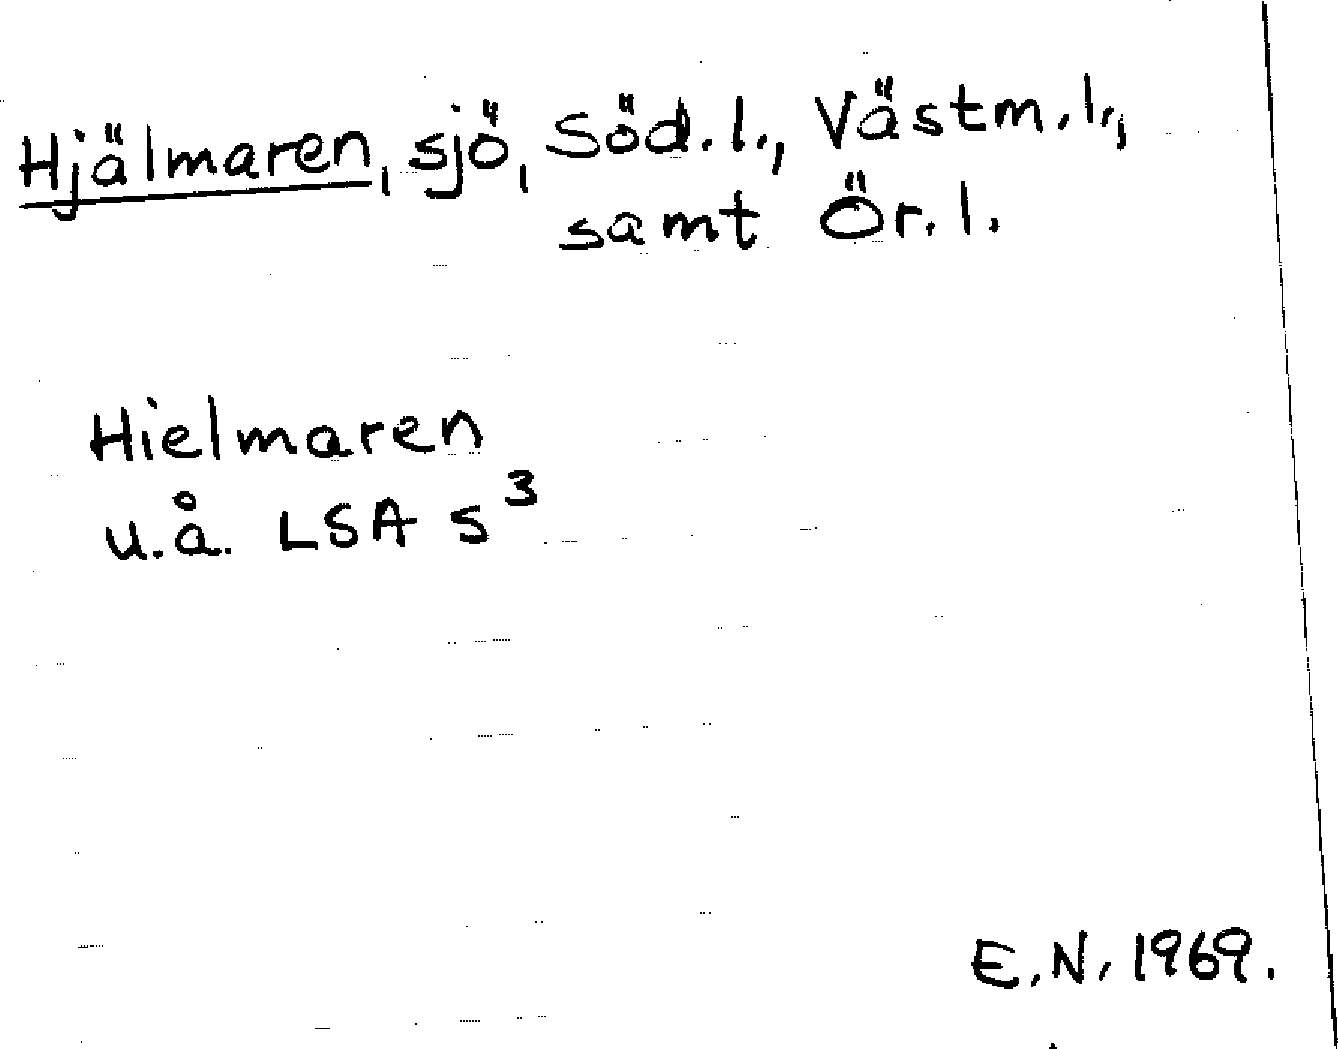 Hjälmaren, sjö, Söd.l., Västm.l.,
samt Ör.l.
Hielmaren
u.å. LSA s³
E.N. 1969.